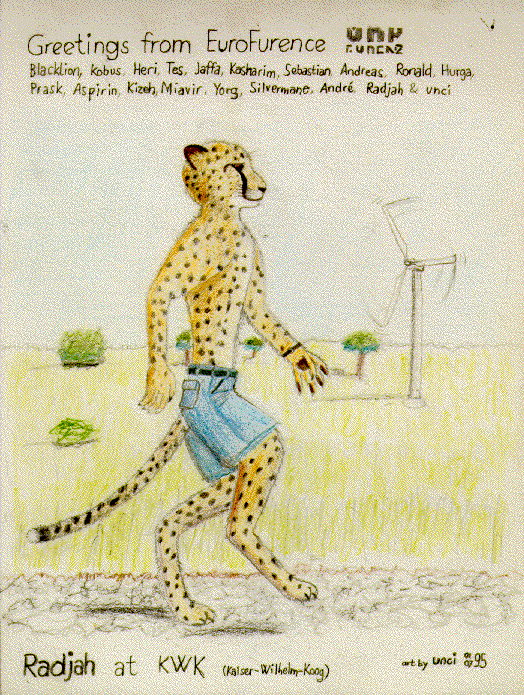 Greetings from EuroFurence
BlackLion, Kobus, Heri, Tes, Jaffa, Kasharim, Sebastian, Andreas, Ronald, Hurga,
Prask, Aspirin, Kizeh, Miavir, Yorg, Silvermane, André, Radjah & unci
Radjah at KWK (Kaiser-Wilhelm-Koog)
art by unci 95